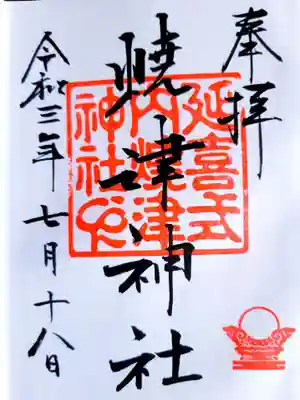 奉拝
焼津神社
延喜式
内焼津
神社之
令和三年七月十八日